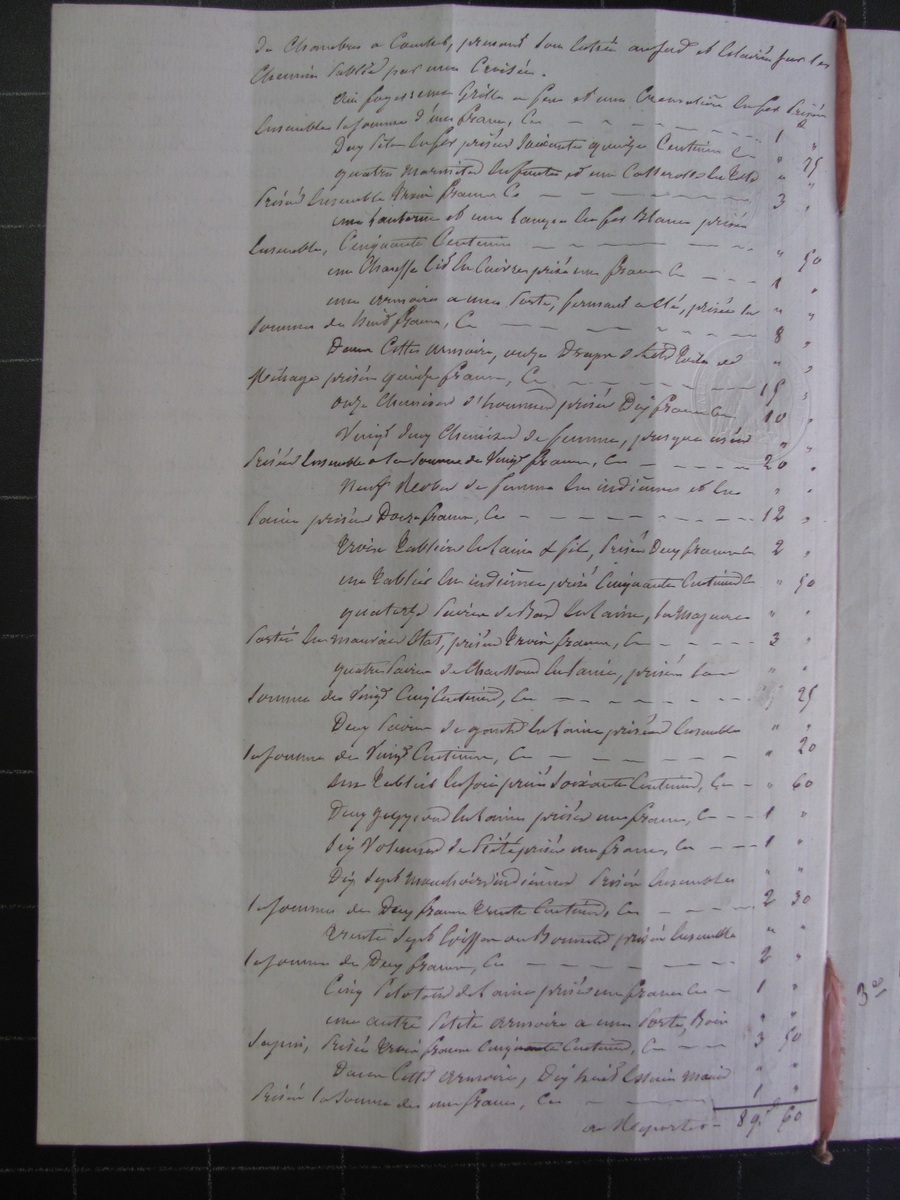 de Chambre a Coucher, prenant son entrée au sud et éclairée sur les
Chemin sablée par une Croisée.
une grille a feu et une Cremaillère en fer prisées
Ensemble la somme d'un franc, Ci — 1 "
Deux en fer prisés soixante quinze Centimes Ci " 75
quatre marmites en fonte et une Casserolle en tole " "
Prisés Ensemble trois francs Ci — 3 "
une Lanterne et une en fer Blanc prisées
Ensemble, Cinquante Centimes — " 50
une Chauffe lit en Cuivre prisé un franc Ci — 1 "
une armoire a une porte, fermant a Clé, prisée la " "
somme de huit francs, Ci — 8 "
Dans Cette armoire, onze Draps de lits toile de " "
Ménage prisés quinze francs, Ci — 15 "
onze Chemises d'hommes prisées Dix francs Ci 10 "
Vingt deux Chemises de femme, presque usées " "
Prisées Ensemble a la somme de Vingt francs, Ci — 20 "
Neuf Robes de femme en indiennes et en " "
laine prisées Douze francs, Ci — 12 "
trois tabliers en laine & fil, prisés Deux francs Ci 2 "
un tablier en indienne prisé Cinquante Centimes Ci " 50
quatorze paires de Bas en laine, la majeure " "
partie en mauvais état, prisées trois francs, Ci — 3 "
quatre paires de Chaussons en laine, prisées la " "
somme de Vingt Cinq Centimes, Ci — " 25
Deux paires de gants en laine prisées Ensemble " "
la somme de Vingt Centimes, Ci — " 20
un tablier en soie prisé soixante Centimes, Ci — " 60
Deux en laine prisés un franc, Ci — 1 "
six Volumes de Piété prisés un franc, Ci — 1 "
Dix sept mouchoirs indiennes prisés Ensemble " "
la somme de Deux francs trente Centimes, Ci — 2 30
trente sept Coiffes ou Bonnets prisés Ensemble " "
la somme de Deux francs, Ci — 2 "
Cinq Pelotons de Laine prisés un franc Ci — 1 "
une autre petite armoire a une porte, Bois " "
sapin, prisée trois francs Cinquante Centimes, Ci — 3 50
Dans Cette armoire, Dix huit Essuie mains " "
Prisés la somme de un franc, Ci — 1 "
a Reporter — 89f 60
3e